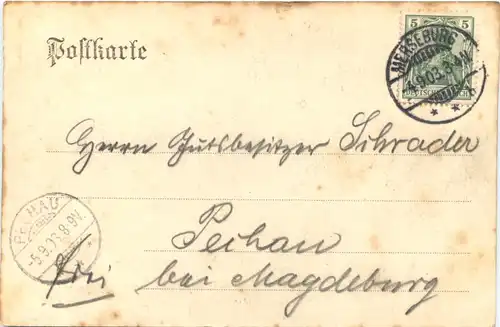 Postkarte
5 5
MERSEBURG
4.9.03. 8-9N.
DEUTSCHES REICH
Herrn Gutsbesitzer Schrader
PECHAU
5.9.03. 8-9V.
Pechau
bei Magdeburg